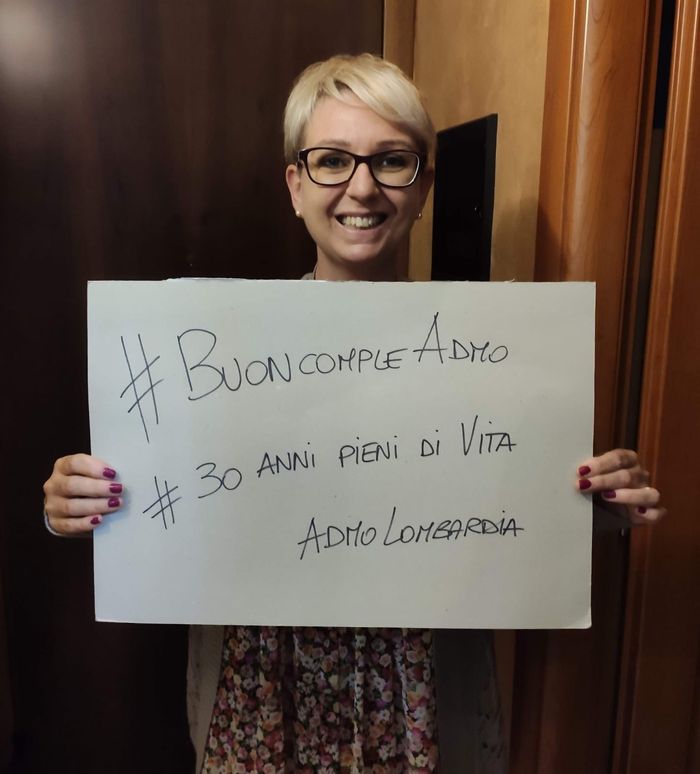 #BUONCOMPLEADMO
#30 ANNI PIENI DI VITA
ADMO LOMBARDIA